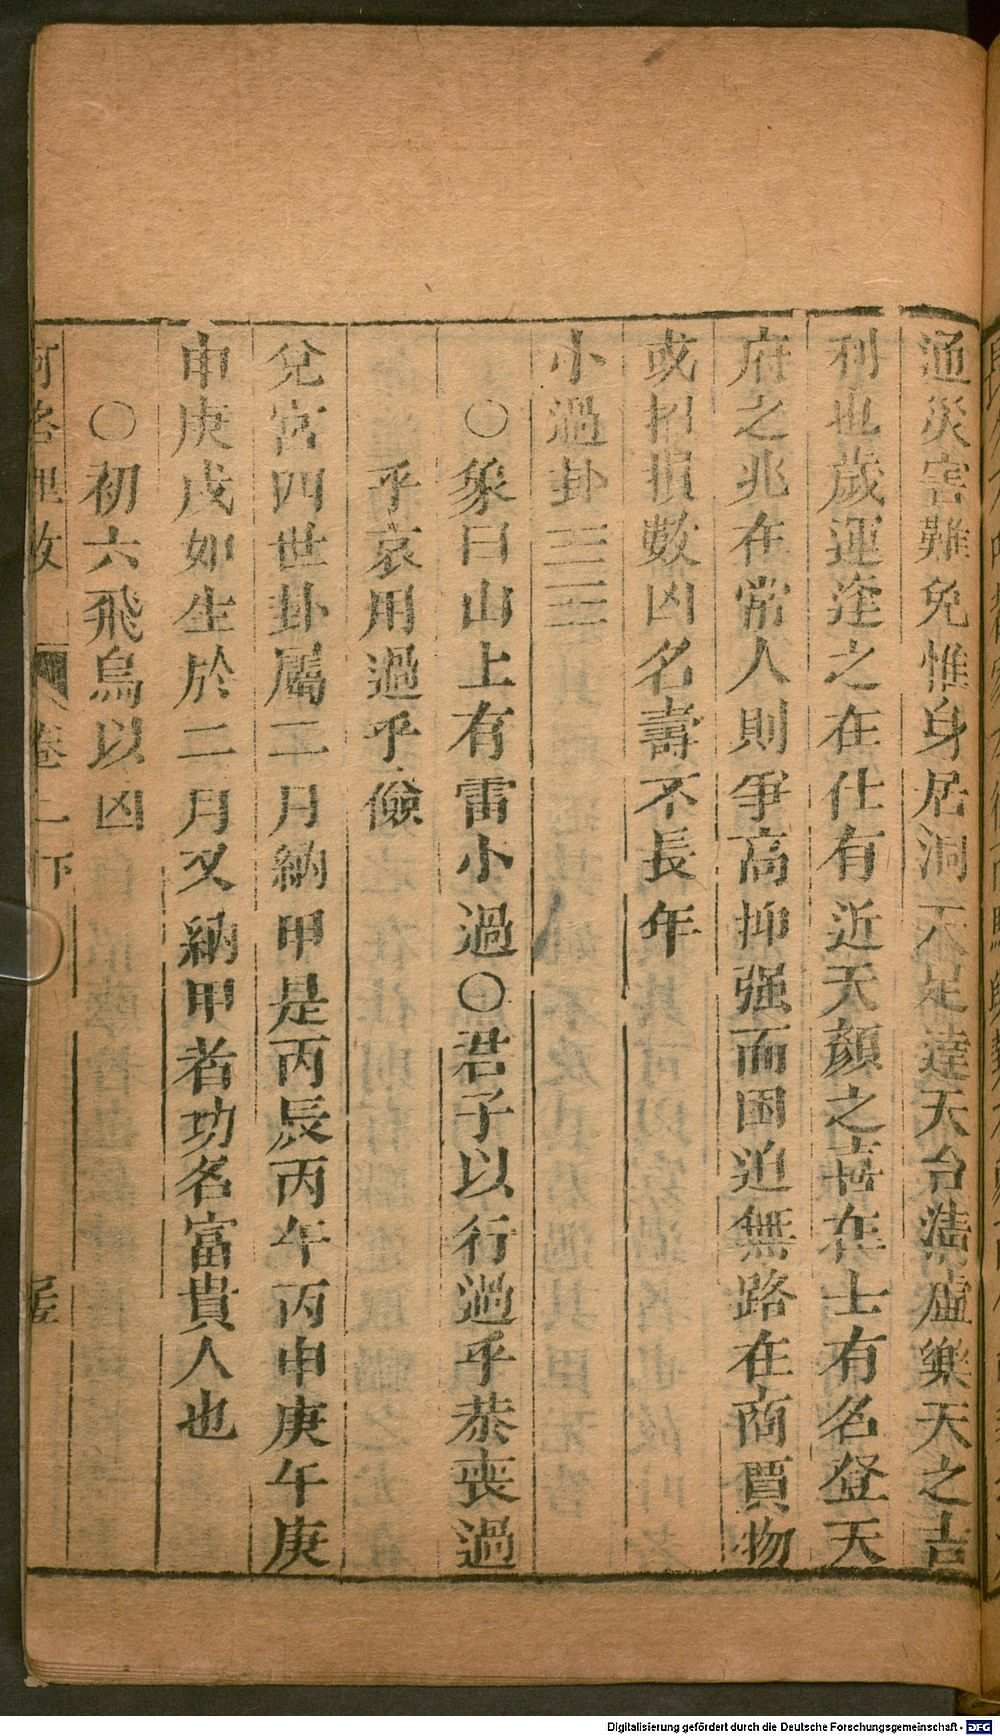 通災害難免惟身居洞不足達天台清虛樂天之吉
利也歲運逢之在仕有近天顏之喜在士有名登天
府之兆在常人則爭高抑强而困迫無路在商賈物
或招損數凶名壽不長年
小過卦
○象曰山上有雷小過○君子以行過乎恭喪過
乎哀用過乎儉
兌宮四世卦屬二月納甲是丙辰丙午丙申庚午庚
申庚戌如生於二月又納甲者功名富貴人也
○初六飛鳥以凶
河洛理數 卷二下
Digitalisierung gefördert durch die Deutsche Forschungsgemeinschaft - DFG